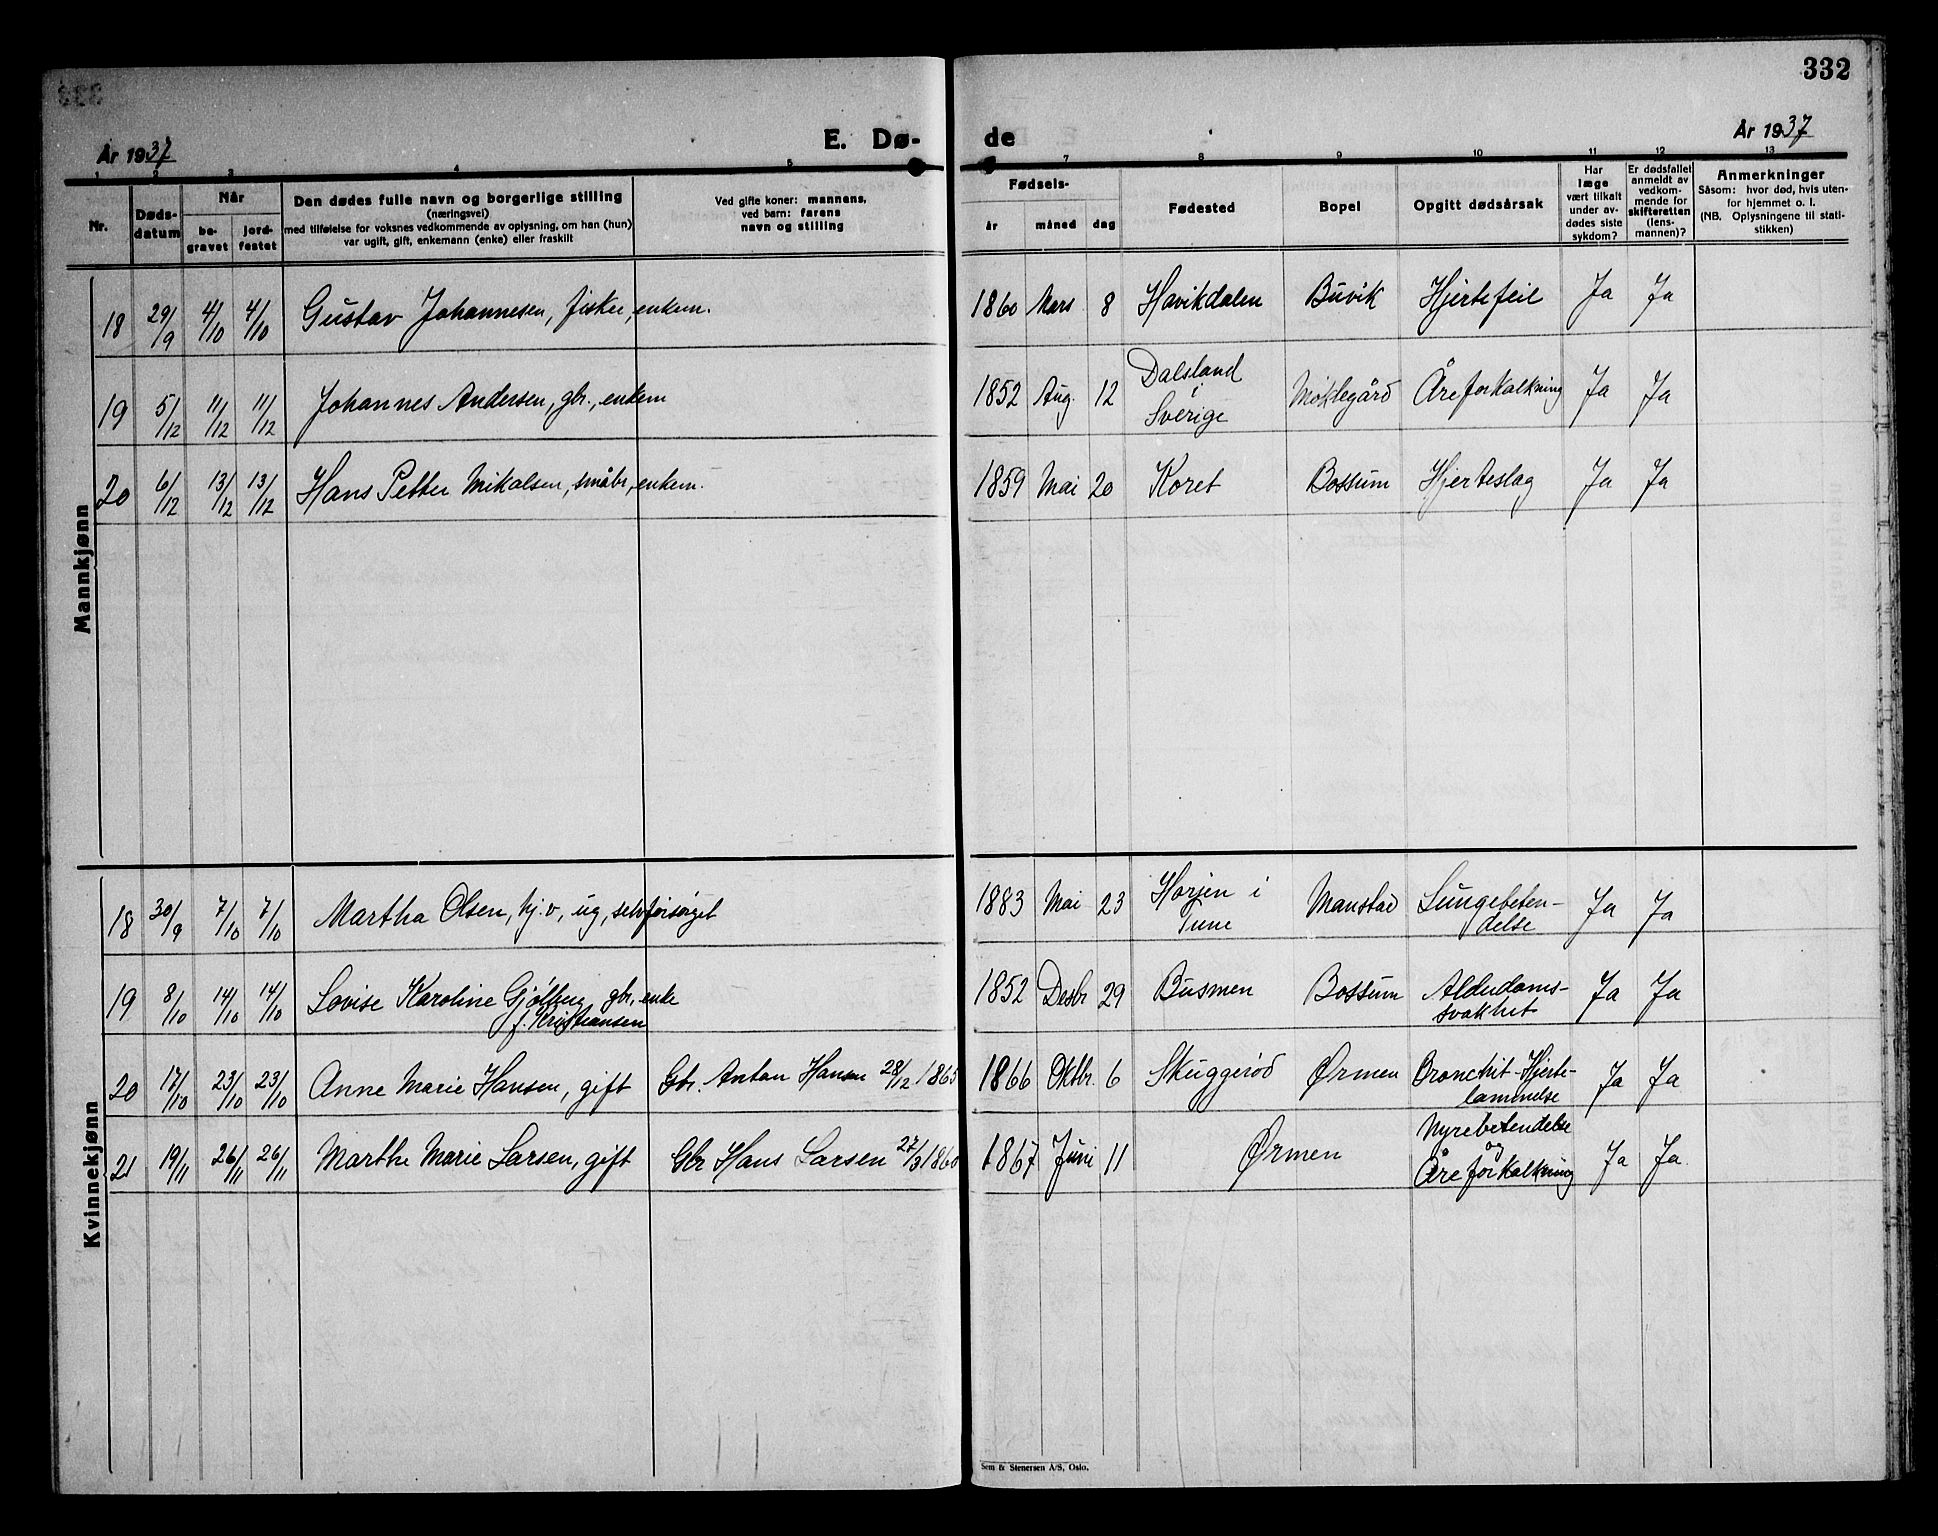 332
År 1937 E. Dø- de År 1937
1 2 3 4 5 7 8 9 10 11 12 13
Nr. Døds-datum Når begravet jordfestet Den dødes fulle navn og borgerlige stilling (næringsvei) med tilføielse for voksnes vedkommende av oplysning, om han (hun) var ugift, gift, enkemann (enke) eller fraskilt Ved gifte koner: mannens, ved barn: farens navn og stilling Fødsels- år måned dag Fødested Bopel Opgitt dødsårsak Har læge vært tilkalt under avdødes siste sykdom? Er dødsfallet anmeldt av vedkommende for skifteretten (lensmannen)? Anmerkninger Såsom: hvor død, hvis utenfor hjemmet o. l. (NB. Oplysningene til statistikken)
Mannkjønn
18 29/9 4/10 4/10 Gustav Johannesen, fisker, enkem. 1860 Mars 8 Havikdalen Buvik Hjertefeil Ja Ja
19 5/12 11/12 11/12 Johannes Andersen, gbr., enkem 1852 Aug. 12 Dalsland i Sverige Moklegård Åreforkalkning Ja Ja
20 6/12 13/12 13/12 Hans Petter Mikalsen, småbr, enkem. 1859 Mai 20 Koret Bossum Hjerteslag Ja Ja
Kvinnekjønn
18 30/9 7/10 7/10 Martha Olsen, hj.v, ug, selvforsørget 1883 Mai 23 Horjen i Tune Manstad Lungebeten-delse Ja Ja
19 8/10 14/10 14/10 Lovise Karoline Gjølberg, gbr, enke f. Kristiansen 1852 Desbr 29 Busmen Bossum Alderdoms-svakhet Ja Ja
20 17/10 23/10 23/10 Anne Marie Hansen, gift Gbr. Anton Hansen 28/12 1865 1866 Oktbr. 6 Skuggerød Ørmen Bronchit-Hjerte-lammelse Ja Ja
21 19/11 26/11 26/11 Marthe Marie Larsen, gift Gbr Hans Larsen 27/3 1860 1867 Juni 11 Ørmen Nyrebetendelse og Åreforkalkning Ja Ja
Sem & Stenersen A/S, Oslo.